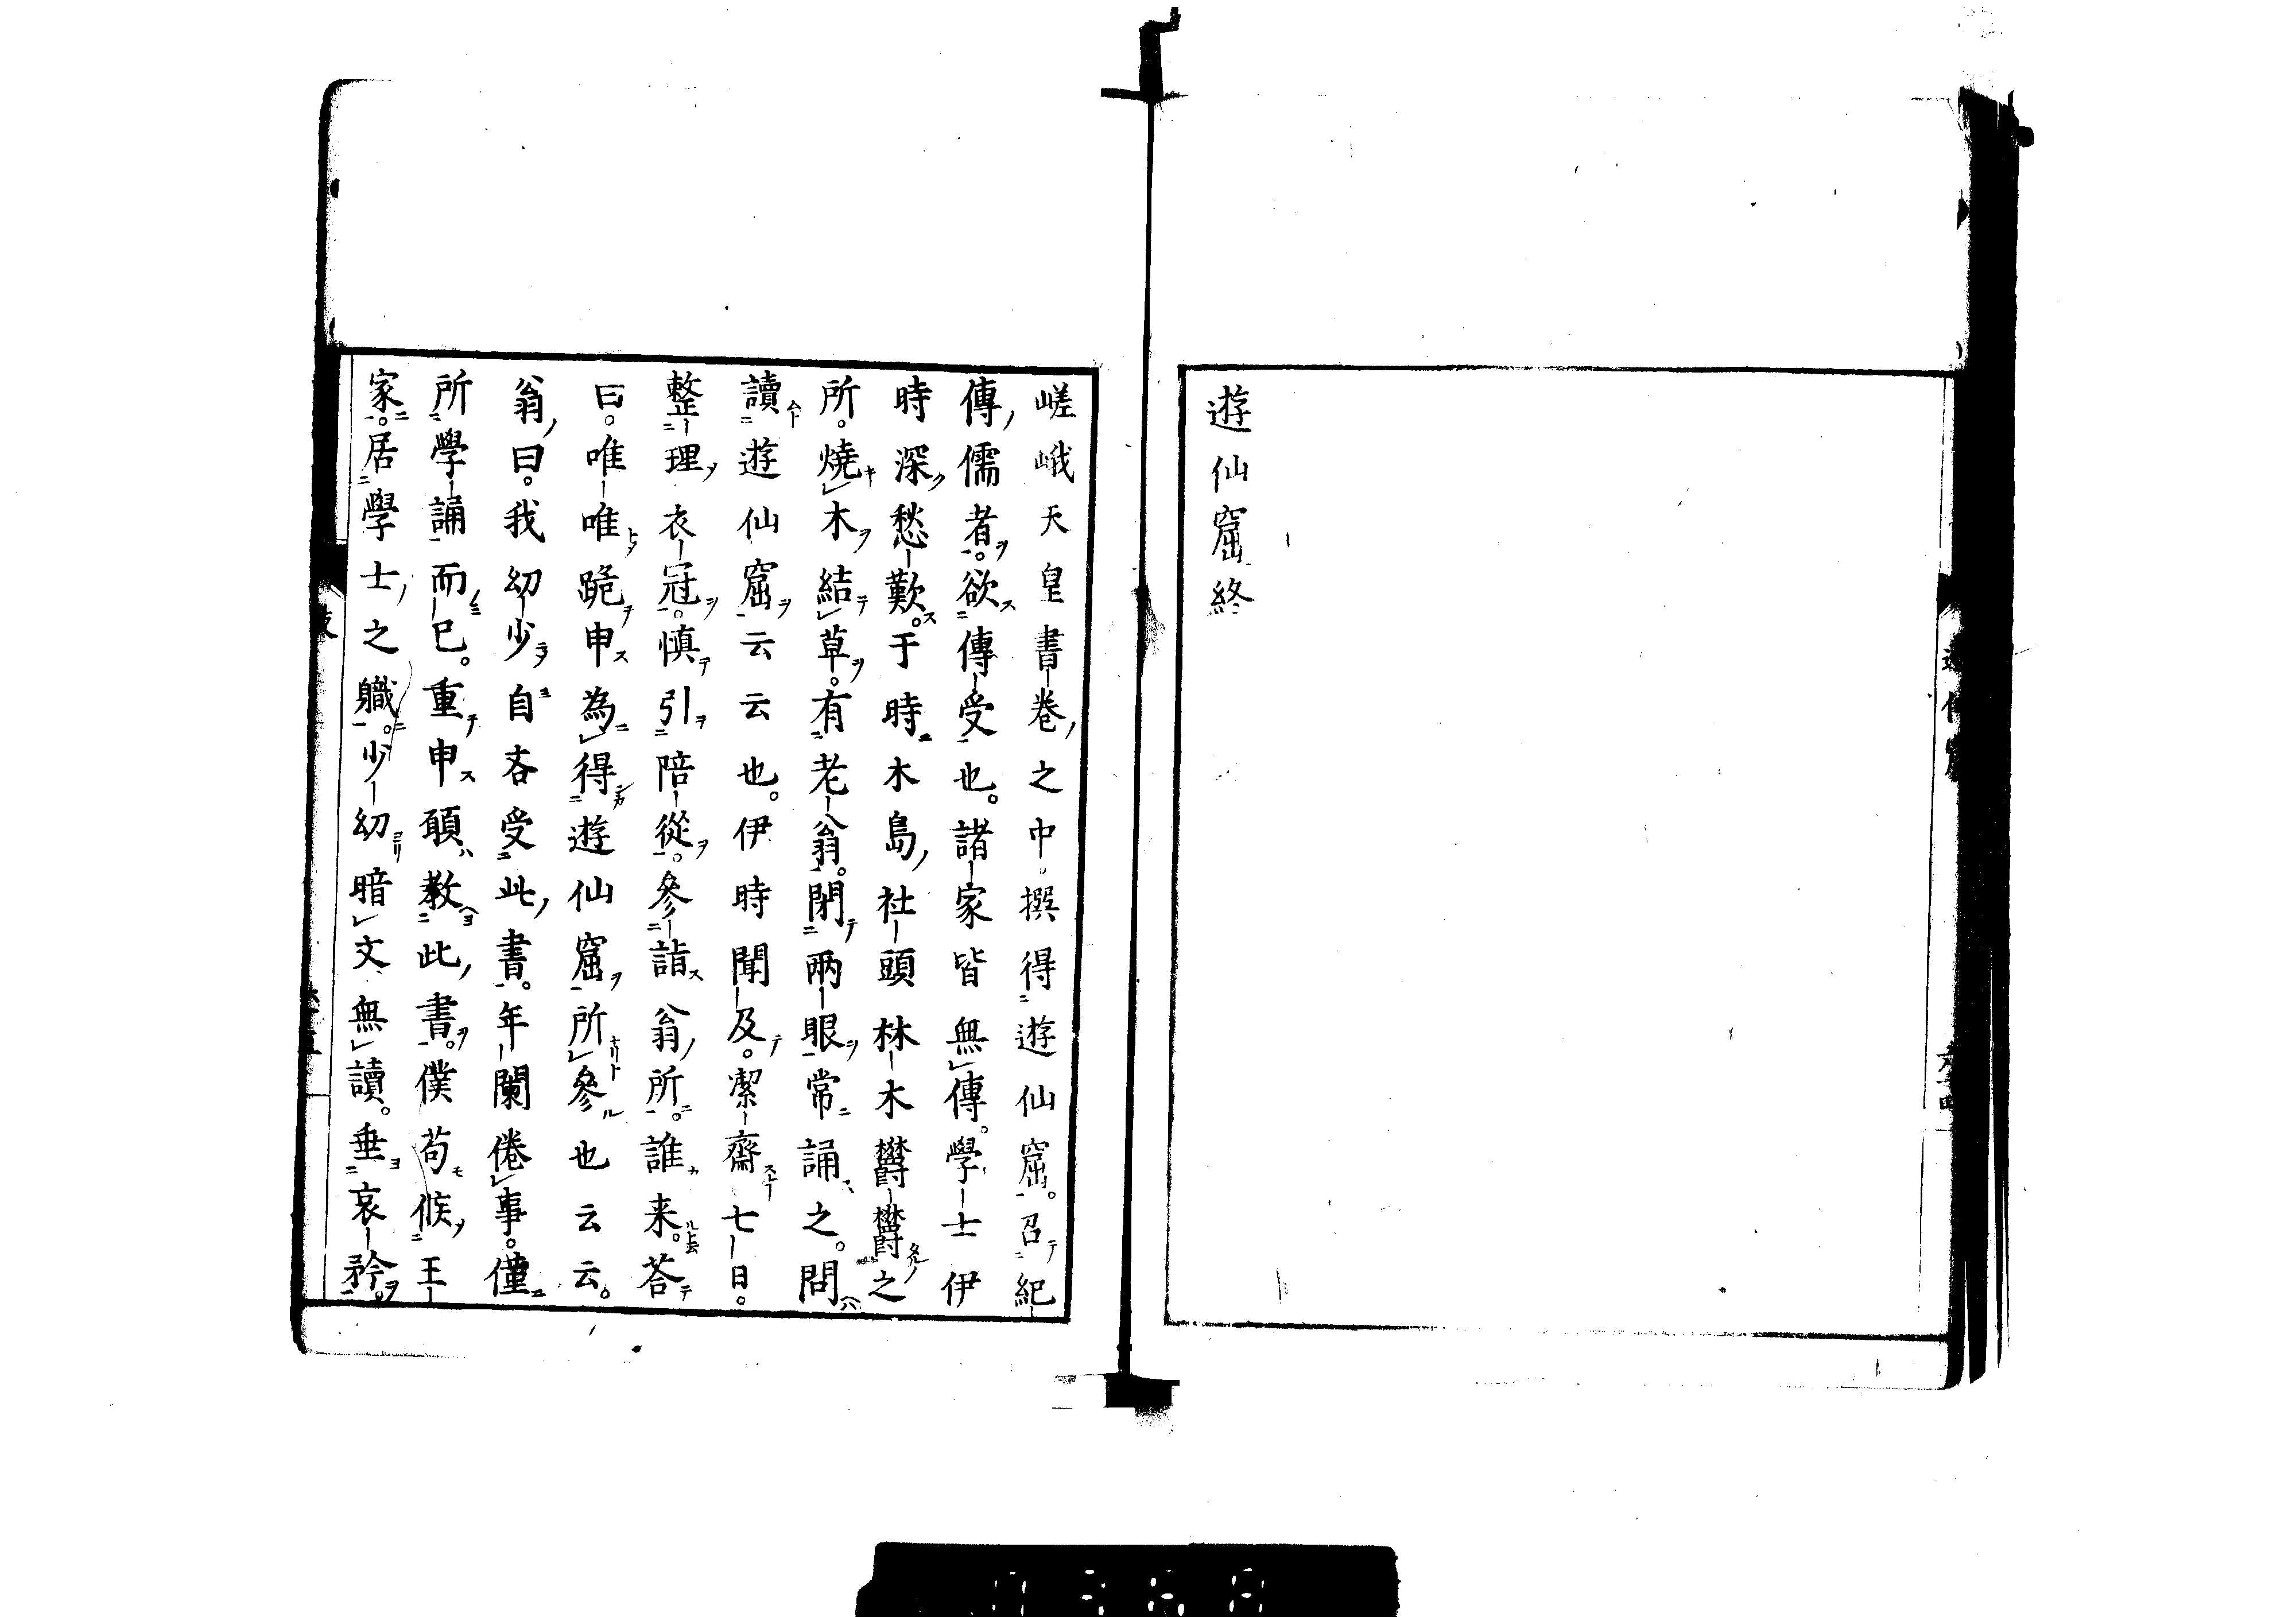 遊仙窟終
嵯峨天皇書卷之中。撰得遊仙窟。召紀
傳儒者。欲傳受也。諸家皆無傳。學士伊
時深愁歎。于時木島社頭林木欝欝之
所。燒木結草。有老翁。閉兩眼常誦之。問
讀遊仙窟云云也。伊時聞及。潔齋七日。
整理衣冠。慎引陪從。參詣翁所。誰来。答
曰。唯唯跪申為得遊仙窟所參也云云。
翁曰。我幼少自吝受此書。年闌倦事。僅
所學誦而已。重申願教此書。僕苟候王
家。居學士之職。少幼暗文無讀。垂哀矜。